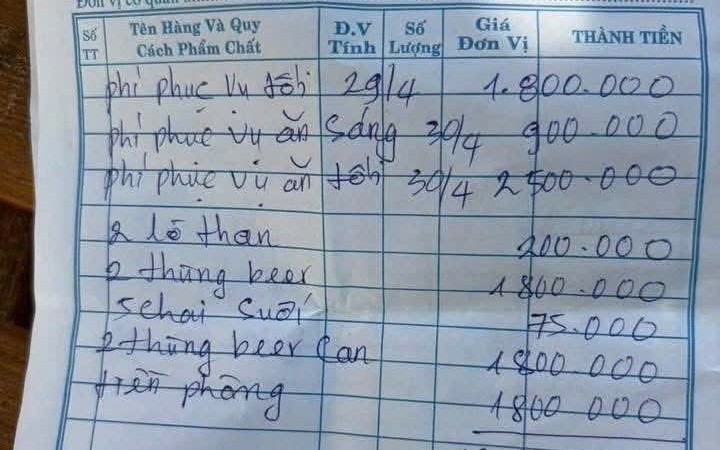 Số TT Tên Hàng Và Quy Cách Phẩm Chất Đ.V Tính Số Lượng Giá Đơn Vị THÀNH TIỀN
phí phục vụ tối 29/4 1.800.000
phí phục vụ ăn Sáng 30/4 900.000
phí phục vụ ăn tối 30/4 2500.000
2 lò than 200.000
2 thùng beer 1800.000
5 chai Suối 75.000
2 thùng beer Can 1800 000
tiền phòng 1800 000